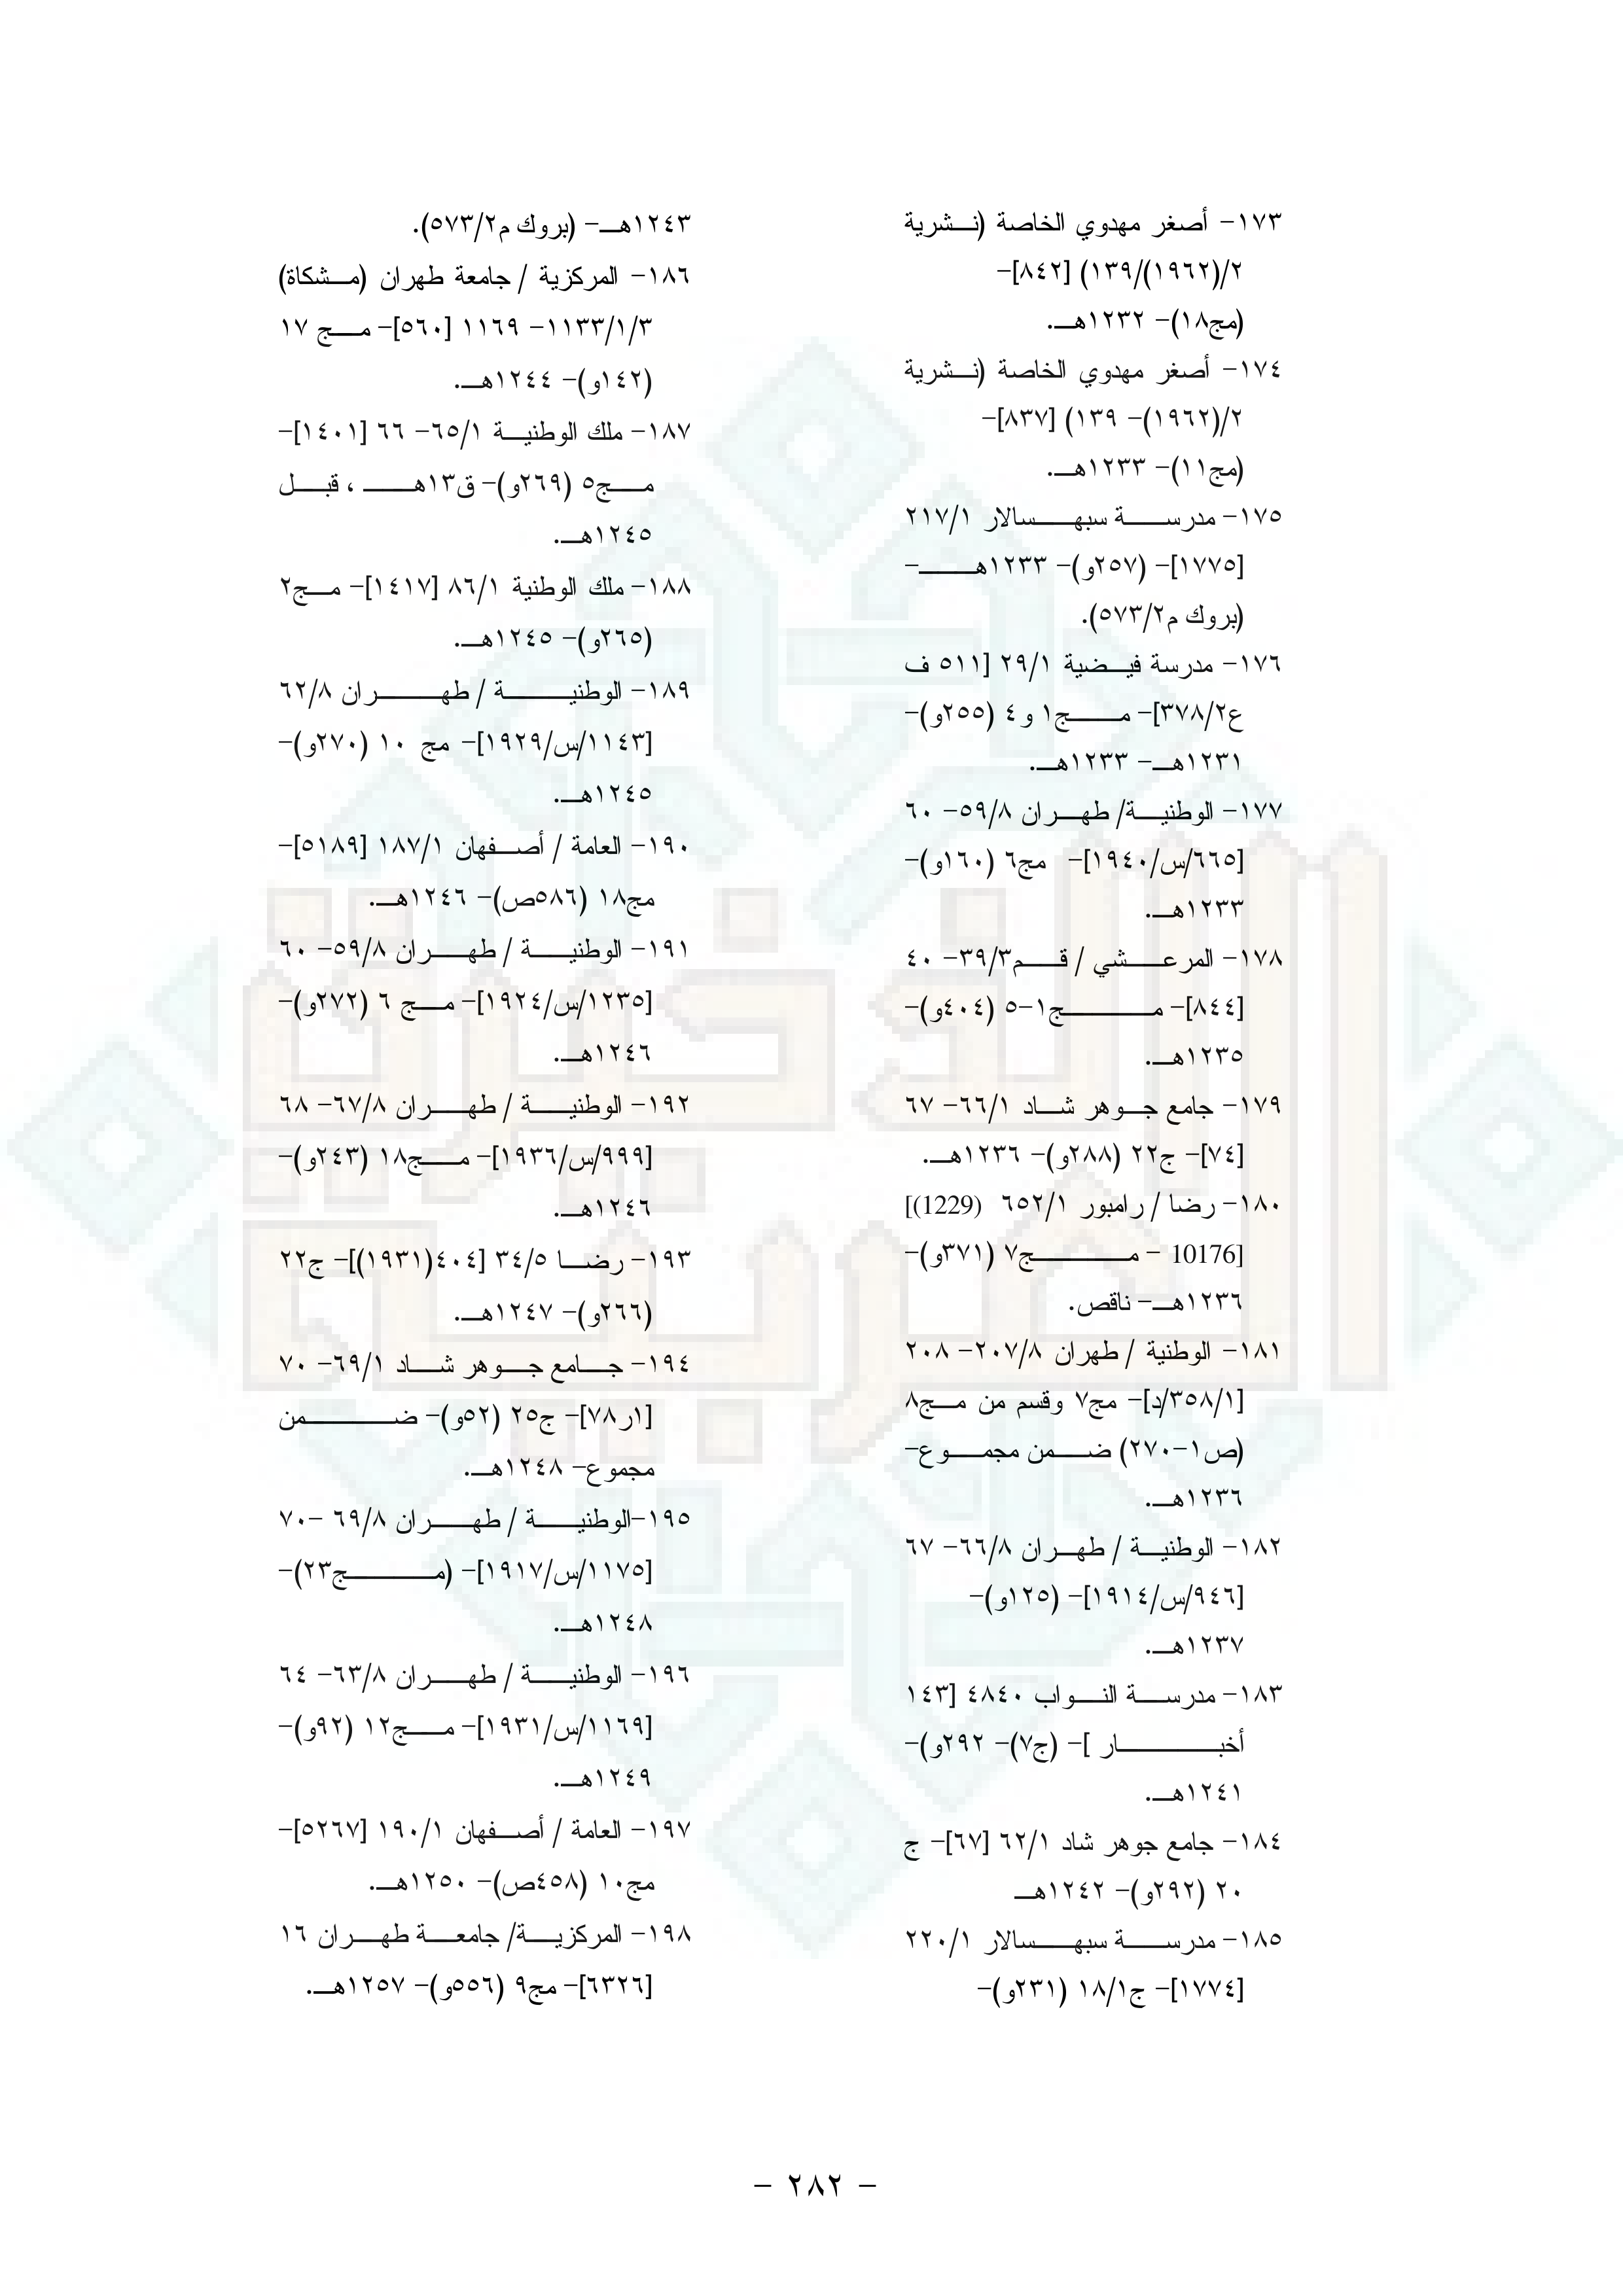 ١٧٣- أصغر مهدوي الخاصة (نشرية
٢/(١٩٦٢)/١٣٩) [٨٤٢]-
(مج١٨)- ١٢٣٢هـ.
١٧٤- أصغر مهدوي الخاصة (نشرية
٢/(١٩٦٢)- ١٣٩) [٨٣٧]-
(مج١١)- ١٢٣٣هـ.
١٧٥- مدرسة سبهسالار ٢١٧/١
[١٧٧٥]- (٢٥٧و)- ١٢٣٣هـ-
(بروك م٥٧٣/٢).
١٧٦- مدرسة فيضية ٢٩/١ [٥١١ ف
ع٣٧٨/٢]- مج١ و٤ (٢٥٥و)-
١٢٣١هـ- ١٢٣٣هـ.
١٧٧- الوطنية/ طهران ٥٩/٨- ٦٠
[٦٦٥/س/١٩٤٠]- مج٦ (١٦٠و)-
١٢٣٣هـ.
١٧٨- المرعشي / قم٣٩/٣- ٤٠
[٨٤٤]- مج١-٥ (٤٠٤و)-
١٢٣٥هـ.
١٧٩- جامع جوهر شاد ٦٦/١- ٦٧
[٧٤]- ج٢٢ (٢٨٨و)- ١٢٣٦هـ.
١٨٠- رضا / رامبور ٦٥٢/١ (1229)]
[10176 - مج٧ (٣٧١و)-
١٢٣٦هـ- ناقص.
١٨١- الوطنية / طهران ٢٠٧/٨- ٢٠٨
[٣٥٨/١/د]- مج٧ وقسم من مج٨
(ص١-٢٧٠) ضمن مجموع-
١٢٣٦هـ.
١٨٢- الوطنية / طهران ٦٦/٨- ٦٧
[٩٤٦/س/١٩١٤]- (١٢٥و)-
١٢٣٧هـ.
١٨٣- مدرسة النواب ٤٨٤٠ [١٤٣
أخبار ]- (ج٧)- ٢٩٢و)-
١٢٤١هـ.
١٨٤- جامع جوهر شاد ٦٢/١ [٦٧]- ج
٢٠ (٢٩٢و)- ١٢٤٢هـ
١٨٥- مدرسة سبهسالار ٢٢٠/١
[١٧٧٤]- ج١٨/١ (٢٣١و)-
١٢٤٣هـ- (بروك م٥٧٣/٢).
١٨٦- المركزية / جامعة طهران (مشكاة)
١١٣٣/١/٣- ١١٦٩ [٥٦٠]- مج ١٧
(١٤٢و)- ١٢٤٤هـ.
١٨٧- ملك الوطنية ٦٥/١- ٦٦ [١٤٠١]-
مج٥ (٢٦٩و)- ق١٣هـ ، قبل
١٢٤٥هـ.
١٨٨- ملك الوطنية ٨٦/١ [١٤١٧]- مج٢
(٢٦٥و)- ١٢٤٥هـ.
١٨٩- الوطنية / طهران ٦٢/٨
[١١٤٣/س/١٩٢٩]- مج ١٠ (٢٧٠و)-
١٢٤٥هـ.
١٩٠- العامة / أصفهان ١٨٧/١ [٥١٨٩]-
مج١٨ (٥٨٦ص)- ١٢٤٦هـ.
١٩١- الوطنية / طهران ٥٩/٨- ٦٠
[١٢٣٥/س/١٩٢٤]- مج ٦ (٢٧٢و)-
١٢٤٦هـ.
١٩٢- الوطنية / طهران ٦٧/٨- ٦٨
[٩٩٩/س/١٩٣٦]- مج١٨ (٢٤٣و)-
١٢٤٦هـ.
١٩٣- رضا ٣٤/٥ [٤٠٤(١٩٣١)]- ج٢٢
(٢٦٦و)- ١٢٤٧هـ.
١٩٤- جامع جوهر شاد ٦٩/١- ٧٠
[١ر٧٨]- ج٢٥ (٥٢و)- ضمن
مجموع- ١٢٤٨هـ.
١٩٥-الوطنية / طهران ٦٩/٨ -٧٠
[١١٧٥/س/١٩١٧]- (مج٢٣)-
١٢٤٨هـ.
١٩٦- الوطنية / طهران ٦٣/٨- ٦٤
[١١٦٩/س/١٩٣١]- مج١٢ (٩٢و)-
١٢٤٩هـ.
١٩٧- العامة / أصفهان ١٩٠/١ [٥٢٦٧]-
مج١٠ (٤٥٨ص)- ١٢٥٠هـ.
١٩٨- المركزية/ جامعة طهران ١٦
[٦٣٢٦]- مج٩ (٥٥٦و)- ١٢٥٧هـ.
- ٢٨٢ -
الذخيرة
العربية